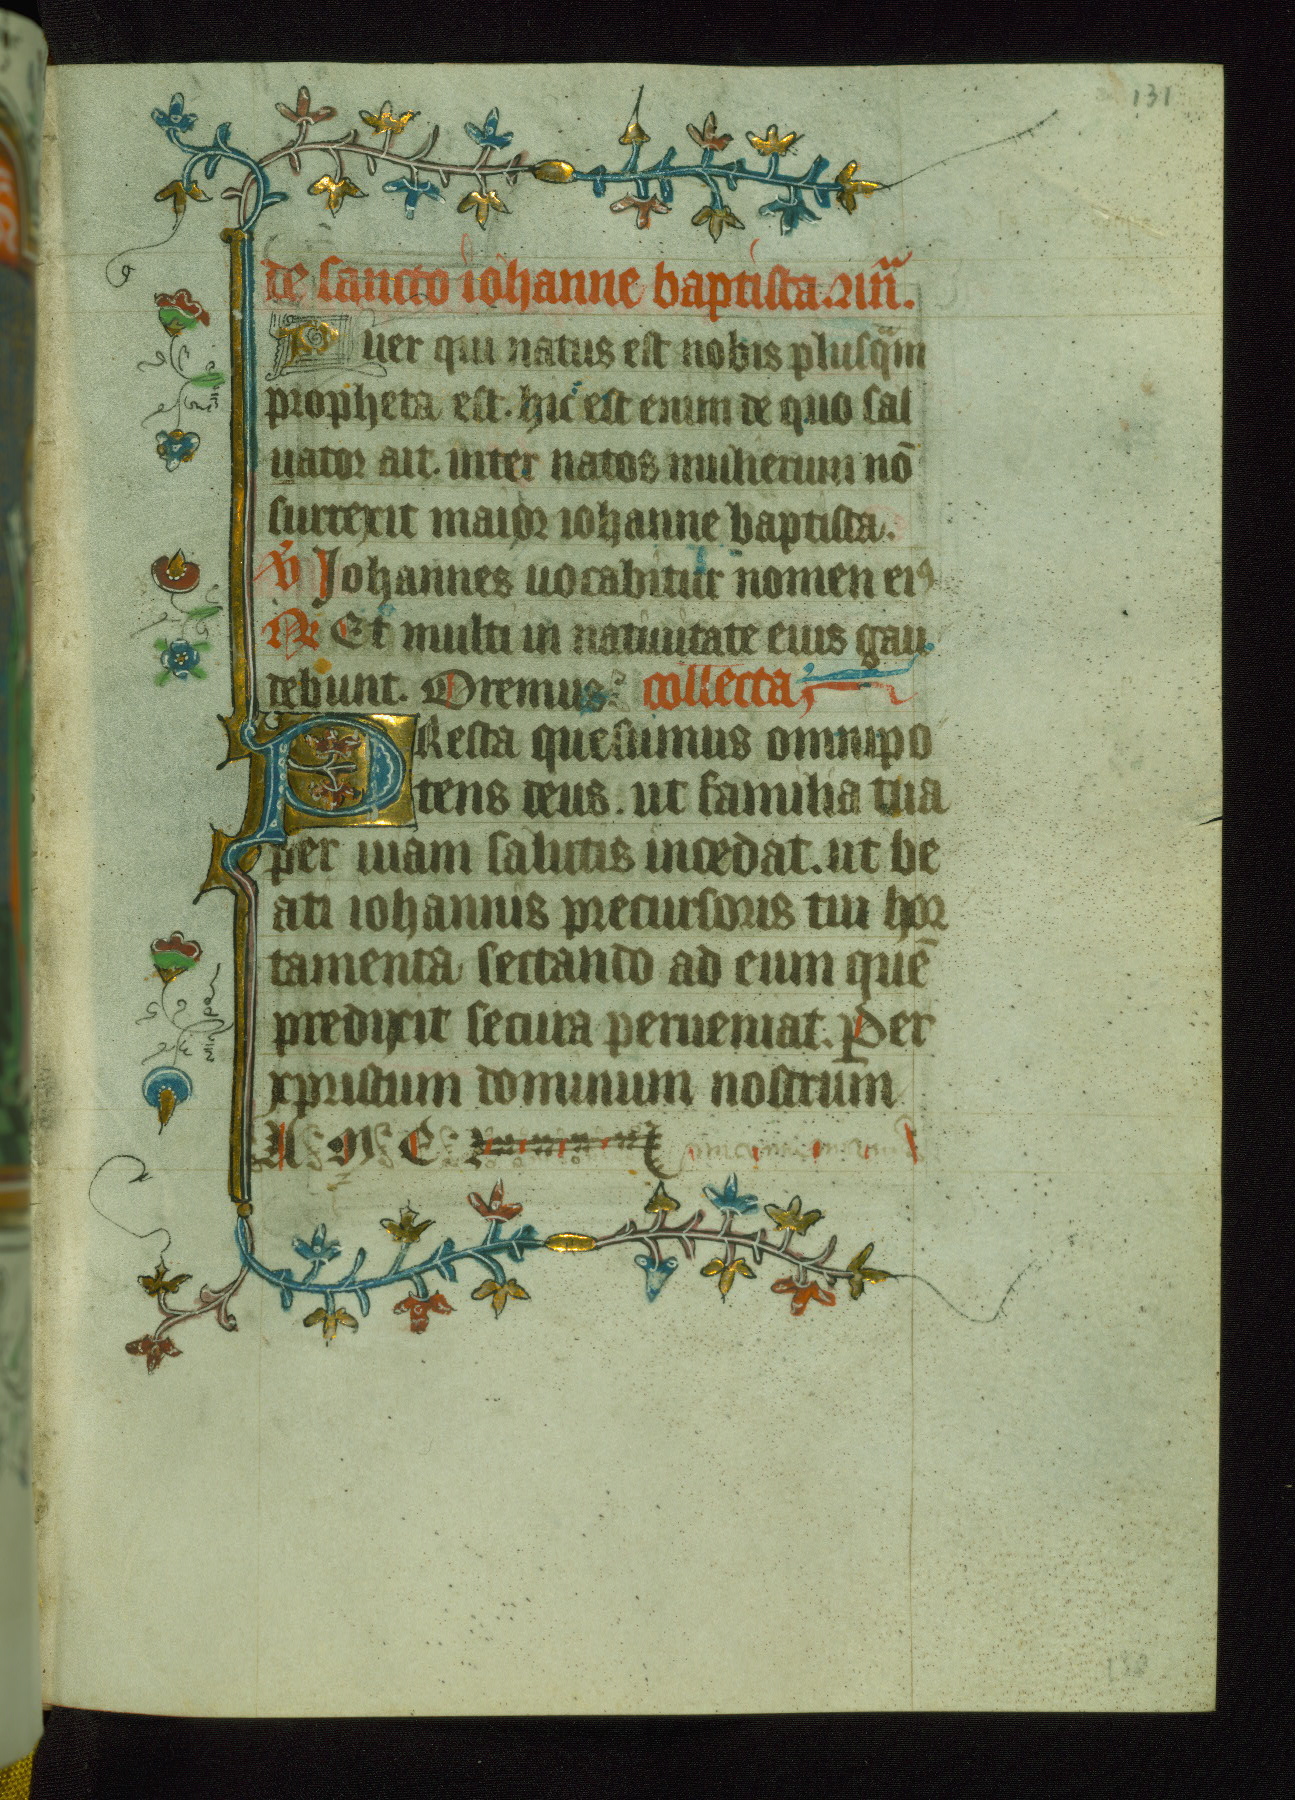 131
de sancto iohanne baptista. añ.
Puer qui natus est nobis plusq̄m
propheta est. hic est enim de quo sal
uator ait. inter natos mulierum nō
surrexit maior iohanne baptista.
V̄ Johannes uocabitur nomen eiꝰ
R Et multi in natiuitate eius gau
debunt. Oremus. collecta
PResta quesumus omnipo
tens deus. ut familia tua
per uiam salutis incedat. ut be
ati iohannis precursoris tui hor
tamenta sectando ad eum quē
predixit secura perueniat. Per
xpristum dominum nostrum
A M E N